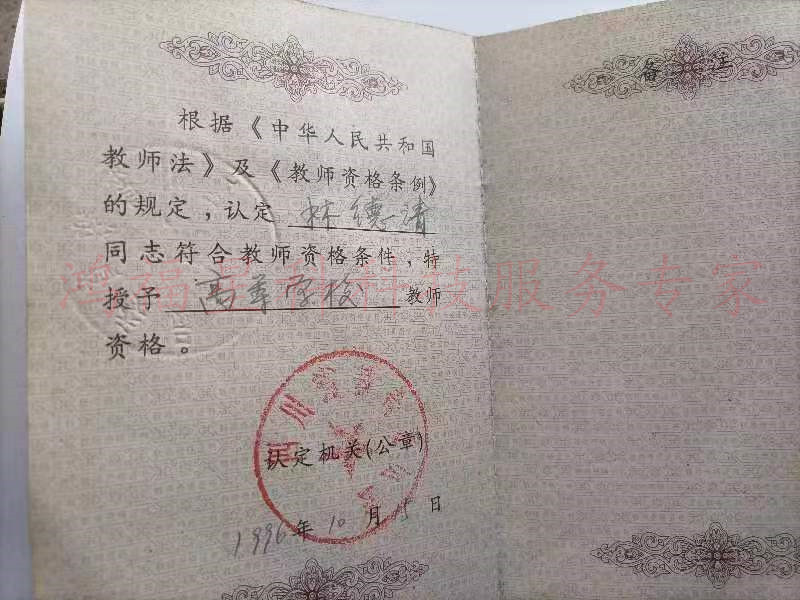 根据《中华人民共和国
教师法》及《教师资格条例》
的规定，认定 林德清
同志符合教师资格条件，特
授予 高等学校 教师
资格。
认定机关(公章)
1996年10月15日
备注